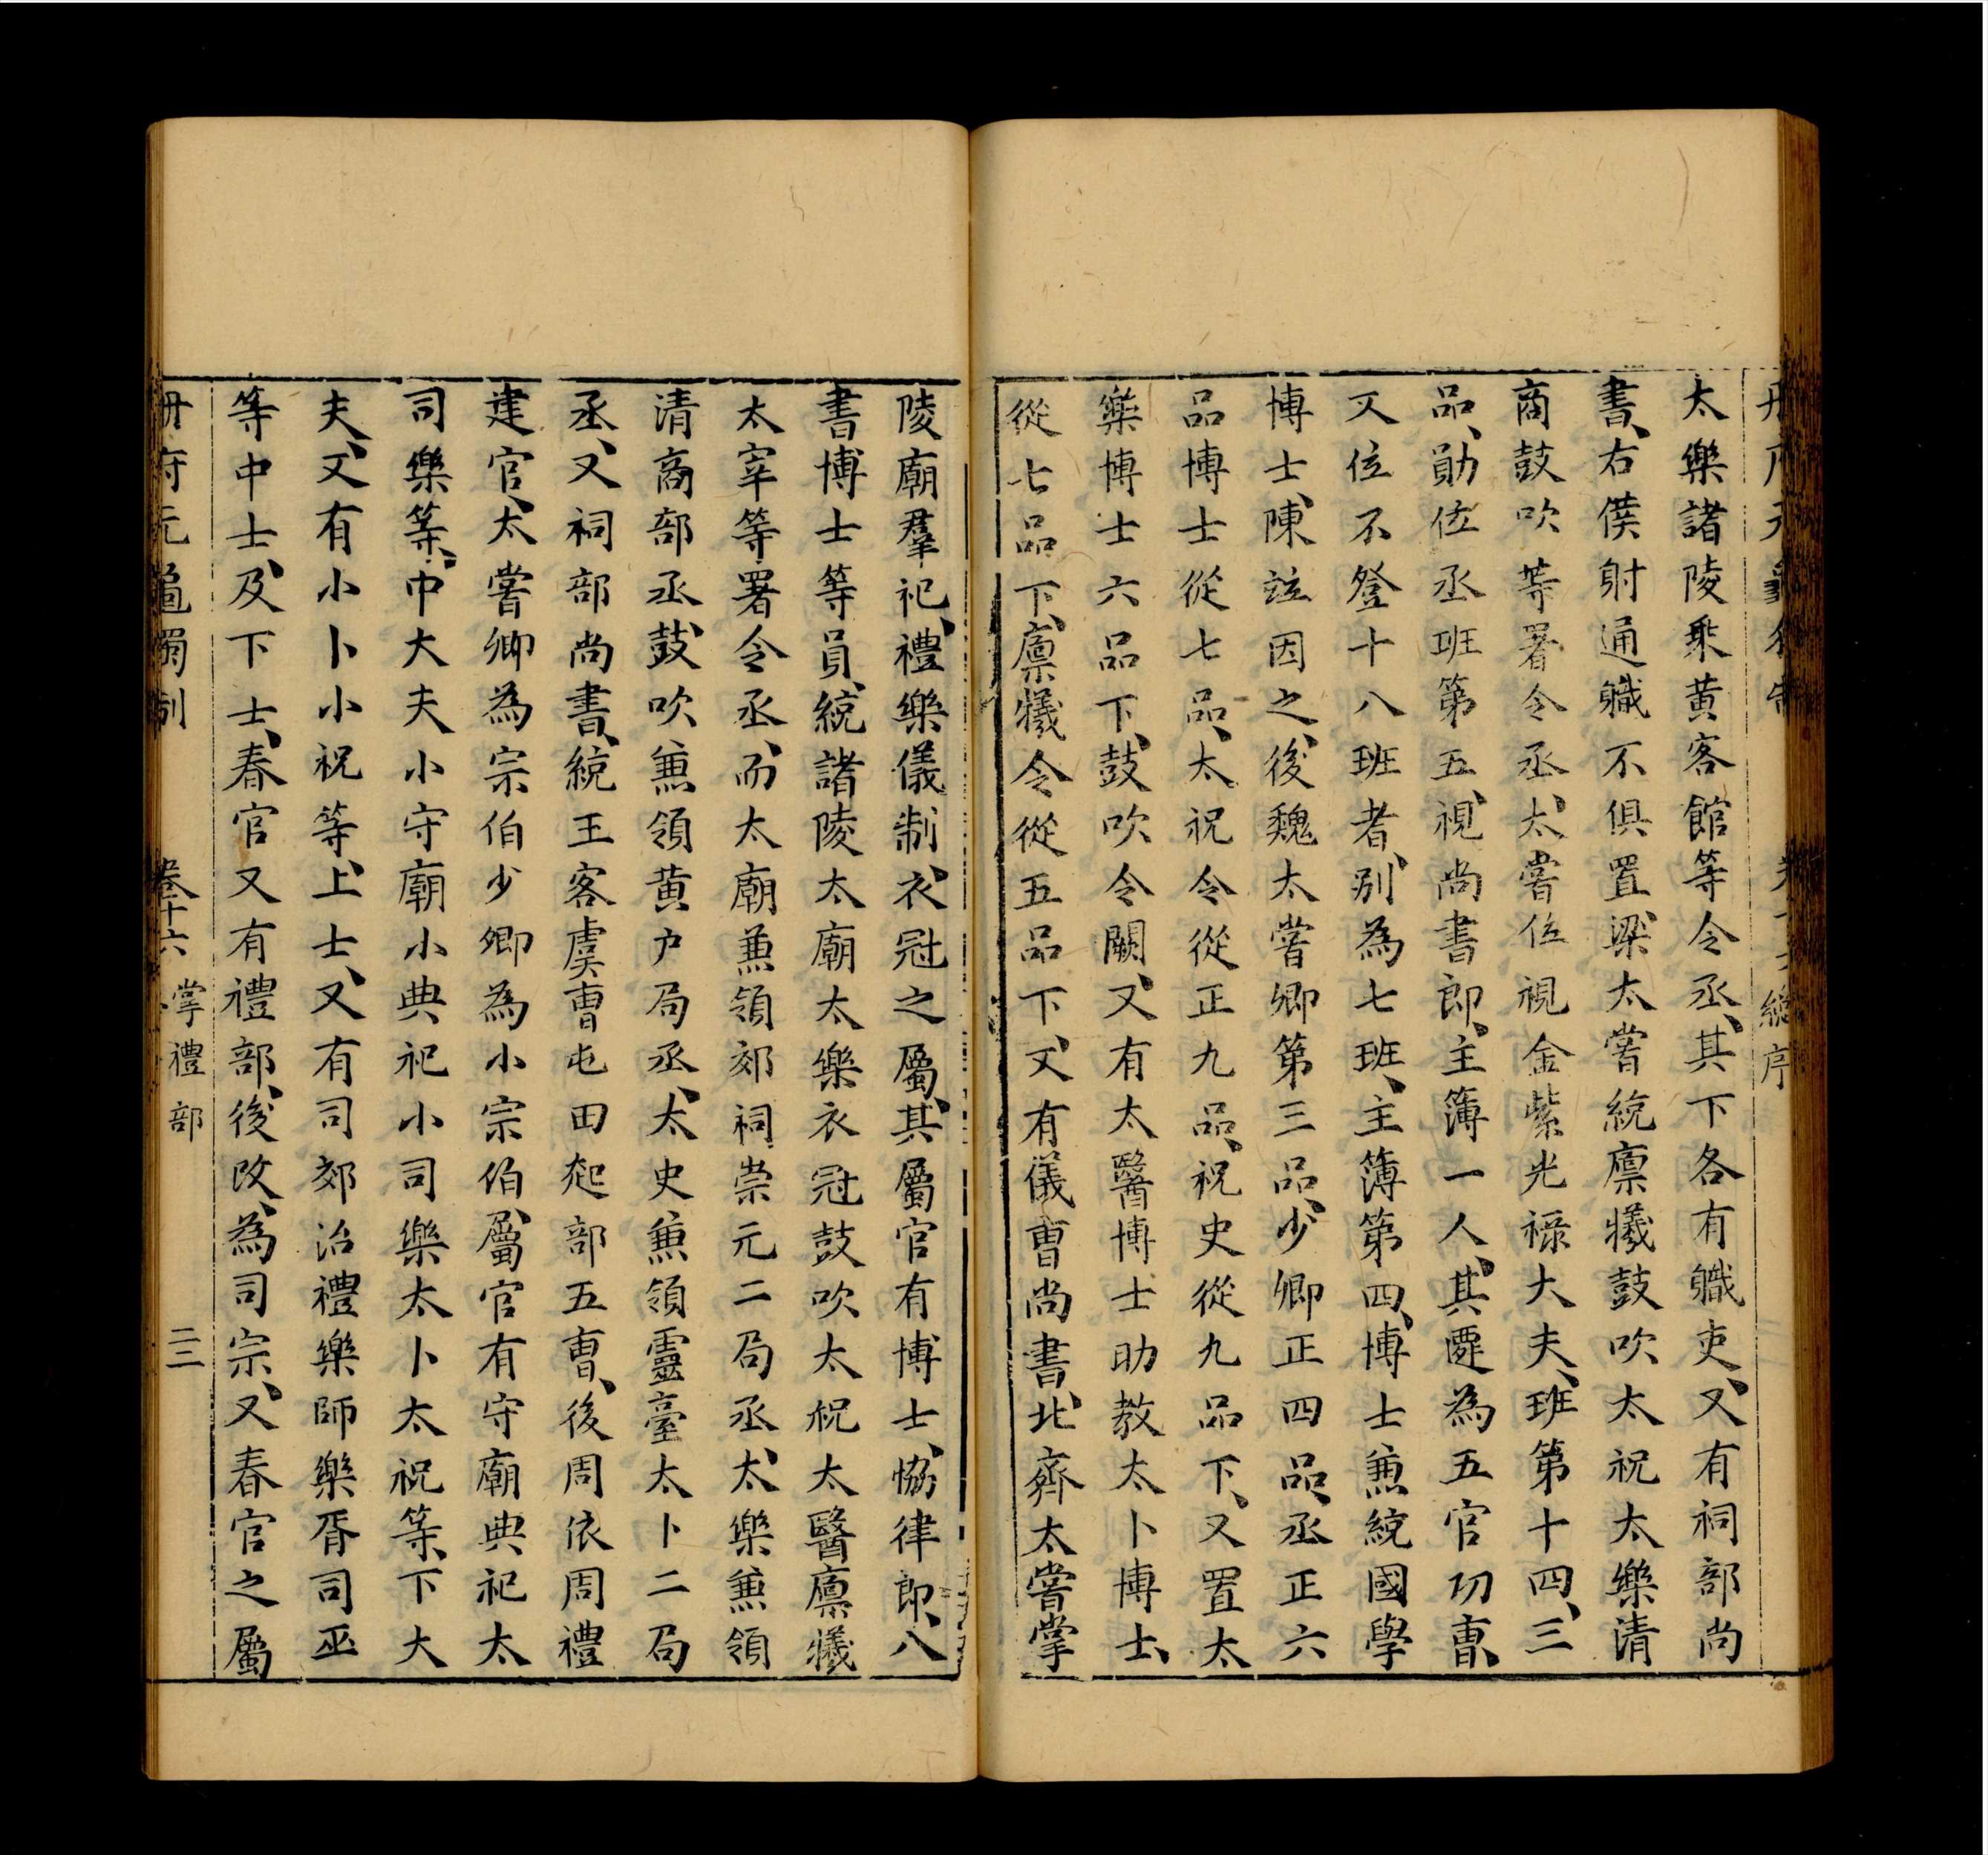 太樂諸陵乘黃客館等令丞、其下各有職吏、又有祠部尚
書、右僕射通職不俱置、梁太嘗統廪犧鼓吹太祝太樂清
商鼓吹等署令丞、太嘗位視金紫光祿大夫、班第十四、三
品、勛位丞班第五、視尚書郎、主簿一人、其遷為五官功曹、
又位不登十八班者、別為七班、主簿第四、博士兼統國學
博士、陳竝因之、後魏太嘗卿第三品、少卿正四品、丞正六
品博士從七品、太祝令從正九品、祝史從九品下、又置太
樂博士六品下、鼓吹令闕、又有太醫博士助教太卜博士、
從七品下、廩犧令從五品下、又有儀曹尚書、北齊太嘗掌
陵廟羣祀、禮樂儀制、衣冠之屬、其屬官有博士、恊律郎、八
書博士等員、統諸陵太廟太樂衣冠鼓吹太祝太醫廪犧
太宰等署令丞、而太廟兼領郊祠崇元二局丞、太樂兼領
清商部丞、鼓吹兼領黃户局丞、太史兼領靈臺太卜二局
丞、又祠部尚書、統王客虞曹屯田起部五曹、後周依周禮
建官、太嘗卿為宗伯少卿為小宗伯、屬官有守廟典祀太
司樂等、中大夫小守廟小典祀小司樂太卜太祝等、下大
夫、又有小卜小祝等、上士、又有司郊治禮樂師樂胥司巫
等中士、及下士、春官又有禮部、後改、為司宗、又春官之屬
冊府元龜獨制 卷十六 掌禮部 二三